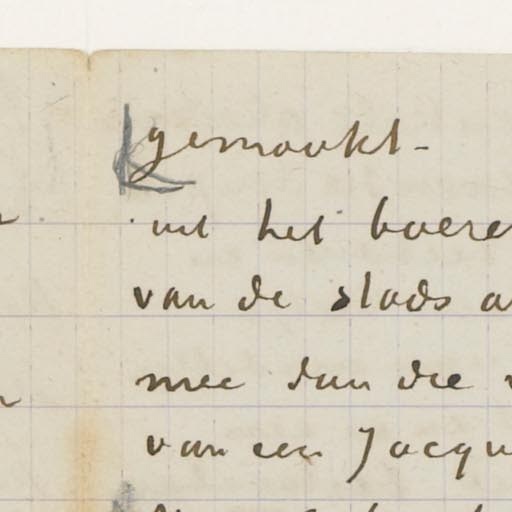 gemaakt -
uit het boere
van de stads a
mee dan die
van een Jacqu